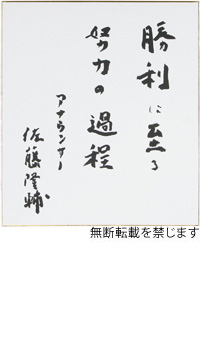 勝利に至る
努力の過程
アナウンサー
佐藤隆輔
無断転載を禁じます